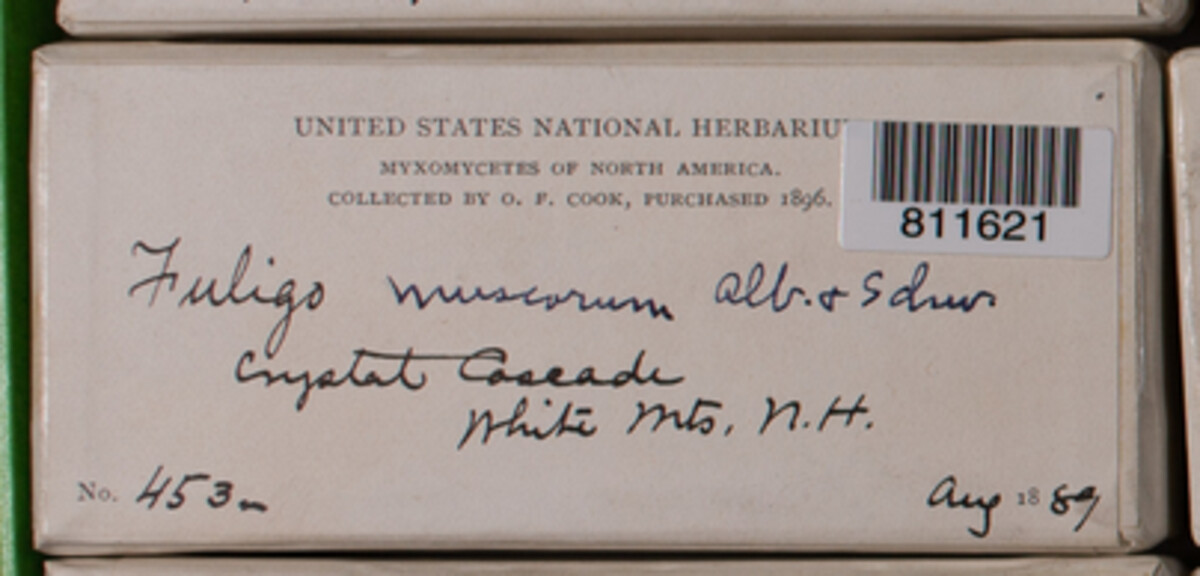 UNITED STATES NATIONAL HERBARIU
MYXOMYCETES OF NORTH AMERICA.
COLLECTED BY O. F. COOK, PURCHASED 1896.
811621
Fuligo muscorum Alb. & Schw.
Crystal Cascade
White Mts, N.H.
No. 453m
Aug 1889